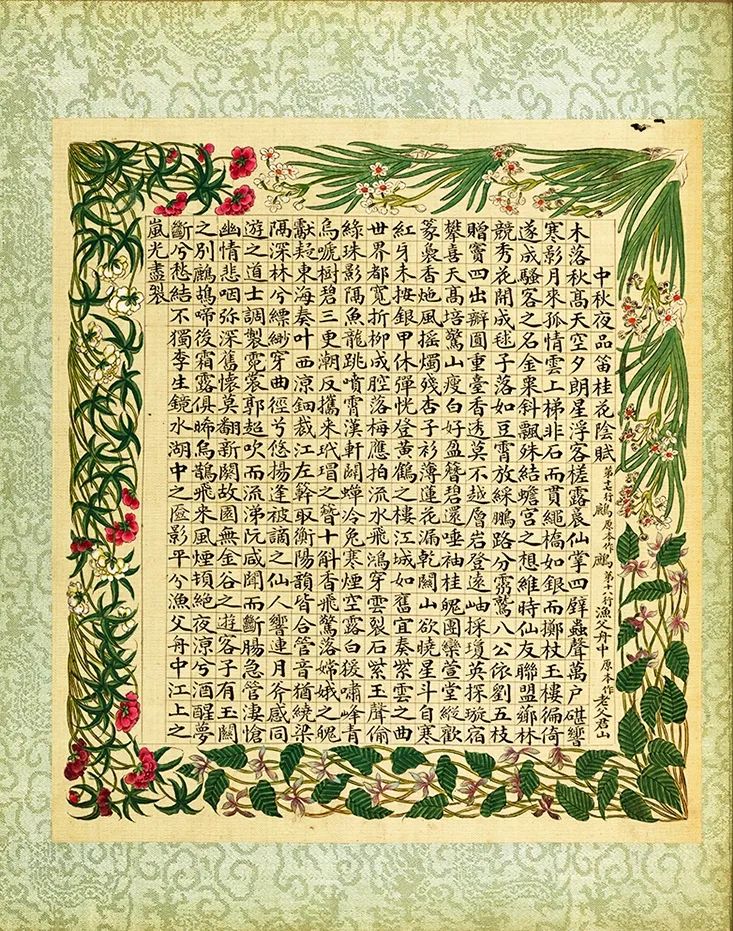 中秋夜品笛桂花陰賦 第七行 鵰 原本作 鵰 第十八行 漁父舟中 原本作 老父君山
木落秋髙天空夕朗星浮客槎露裛仙掌四壁蟲聲萬戶碪響
寒影月來孤情雲上梯非石而貫繩橋如銀而擲杖玉樓徧倚
遂成騷客之名金粟斜飄殊結蟾宮之想維時仙友聯盟薜林
競秀花開成毬子落如豆霄放綵鵬路分霧鷲八公依劉五枝
贈竇四出瓣圓重臺香透莫不越層岩登遠岫採瓊英探璇宿
攀喜天髙培驚山瘦白好盈簪碧還唾袖桂魄團欒萱堂縱歡
篆裊香灺風搖燭殘杏子衫薄蓮花漏乾闗山欲曉星斗自寒
紅牙未按銀甲休彈恍登黃鶴之樓江城如舊宜奏紫雲之曲
世界都寬折柳成腔落梅應拍流水飛鴻穿雲裂石紫玉聲偷
綠珠影隔魚龍跳噴霄漢軒闢蟬冷兔寒煙空露白猿嘯峰青
烏唬樹碧三更潮反攜來玳瑁之簪十斛香飛驚落嫦娥之魄
獻疑東海奏叶西涼鈿裁江左簳取衡陽韻皆合管音猶繞梁
隔深林兮縹緲穿曲徑兮悠揚逢被謫之仙人響連月斧感同
遊之道士調製霓裳郭超吹而流涕阮咸聞而斷腸急管淒愴
幽情悲咽弥深舊懷莫翻新闋故國無金谷之遊客子有玉關
之別鷓鴣啼後霜露俱晞烏鵲飛來風煙頓絕夜涼兮酒醒夢
斷兮愁結不獨李生鏡水湖中之陰影平兮漁父舟中江上之
嵐光盡裂